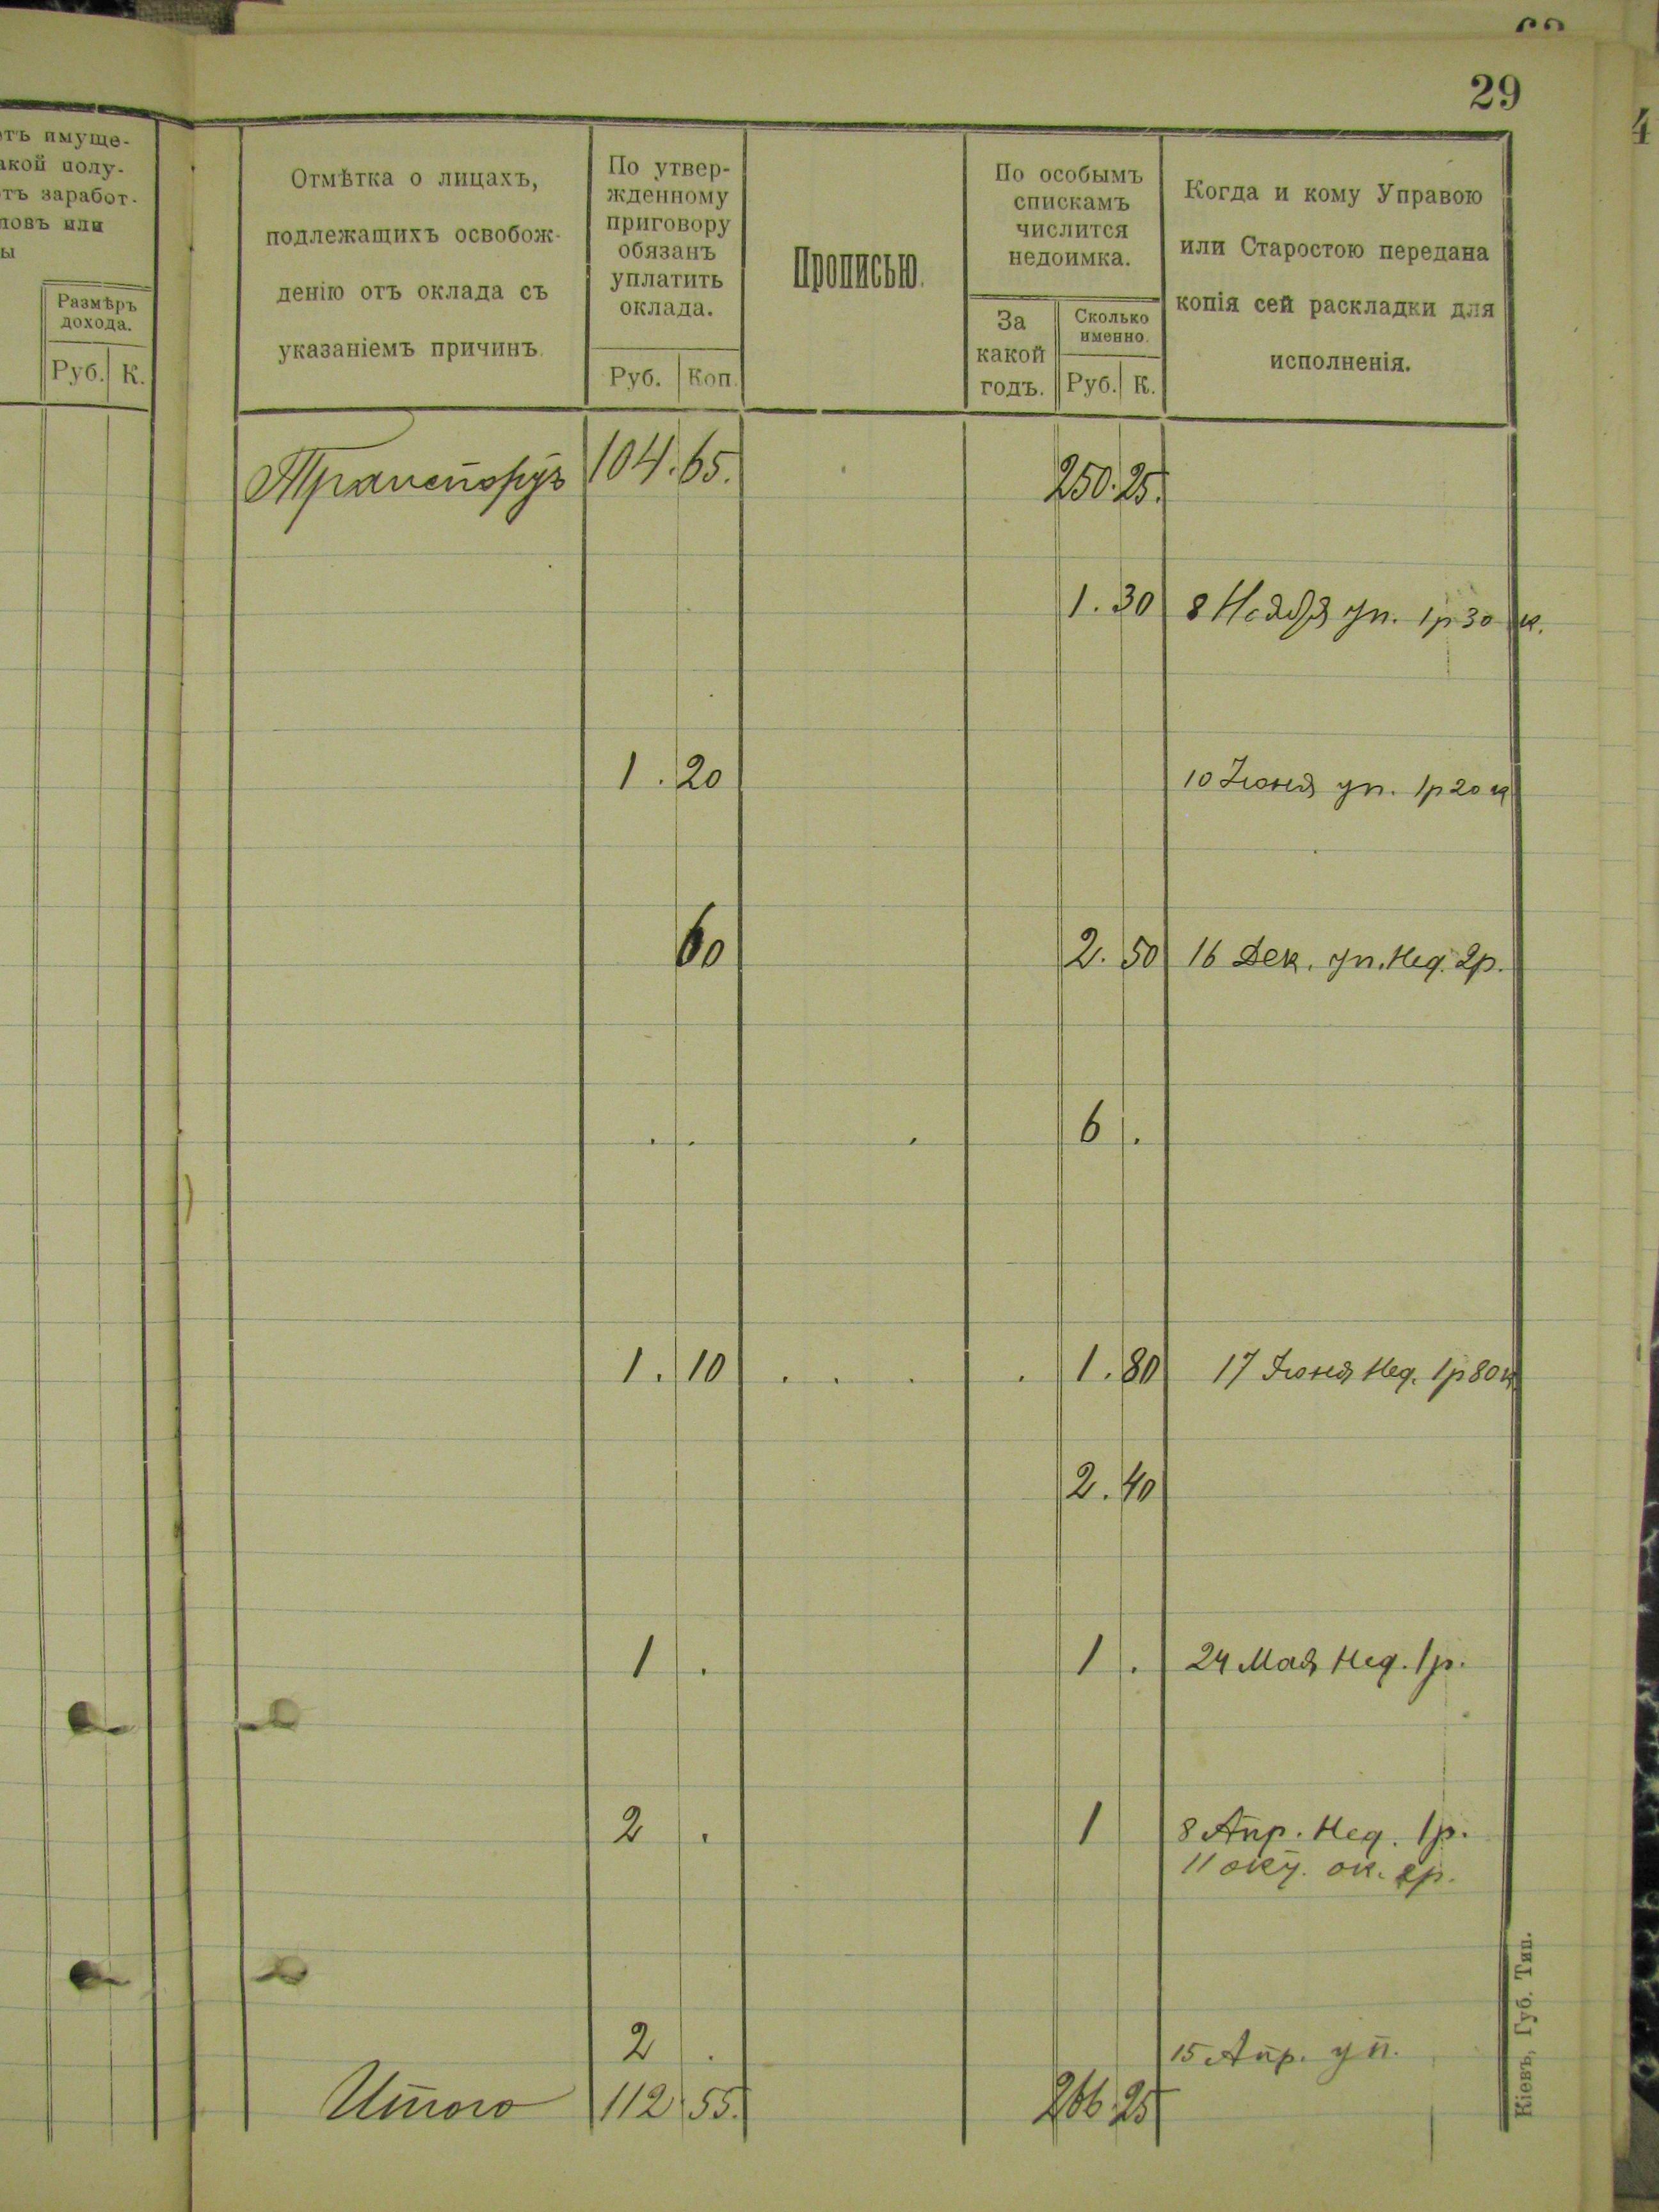 29
4
отъ имуще-
акой полу-
отъ заработ-
ловъ или
ы
Размѣръ
дохода.
Руб. К.
Отмѣтка о лицахъ,
подлежащихъ освобож-
денію отъ оклада съ
указаніемъ причинъ.
По утвер-
жденному
приговору
обязанъ
уплатить
оклада.
Руб. Коп.
Прописью.
По особымъ
спискамъ
числится
недоимка.
За
какой
годъ.
Сколько
именно.
Руб. К.
Когда и кому Управою
или Старостою передана
копія сей раскладки для
исполненія.
Транспортъ 104.65. 250.25.
1.30 8 Ноября уп. 1р 30 к.
1.20 10 Іюня уп. 1р 20 к
60 2.50 16 Дек. уп. Нед. 2р.
. . . 6 .
1.10 . . . . 1.80 17 Іюня Нед. 1р 80 к
2.40
1 . 1 . 24 Мая Нед. 1р.
2 . 1 8 Апр. Нед. 1р.
11 окт. ок. 2р.
2 . 15 Апр. уп.
Итого 112.55. 266.25
Кіевъ, Губ. Тип.